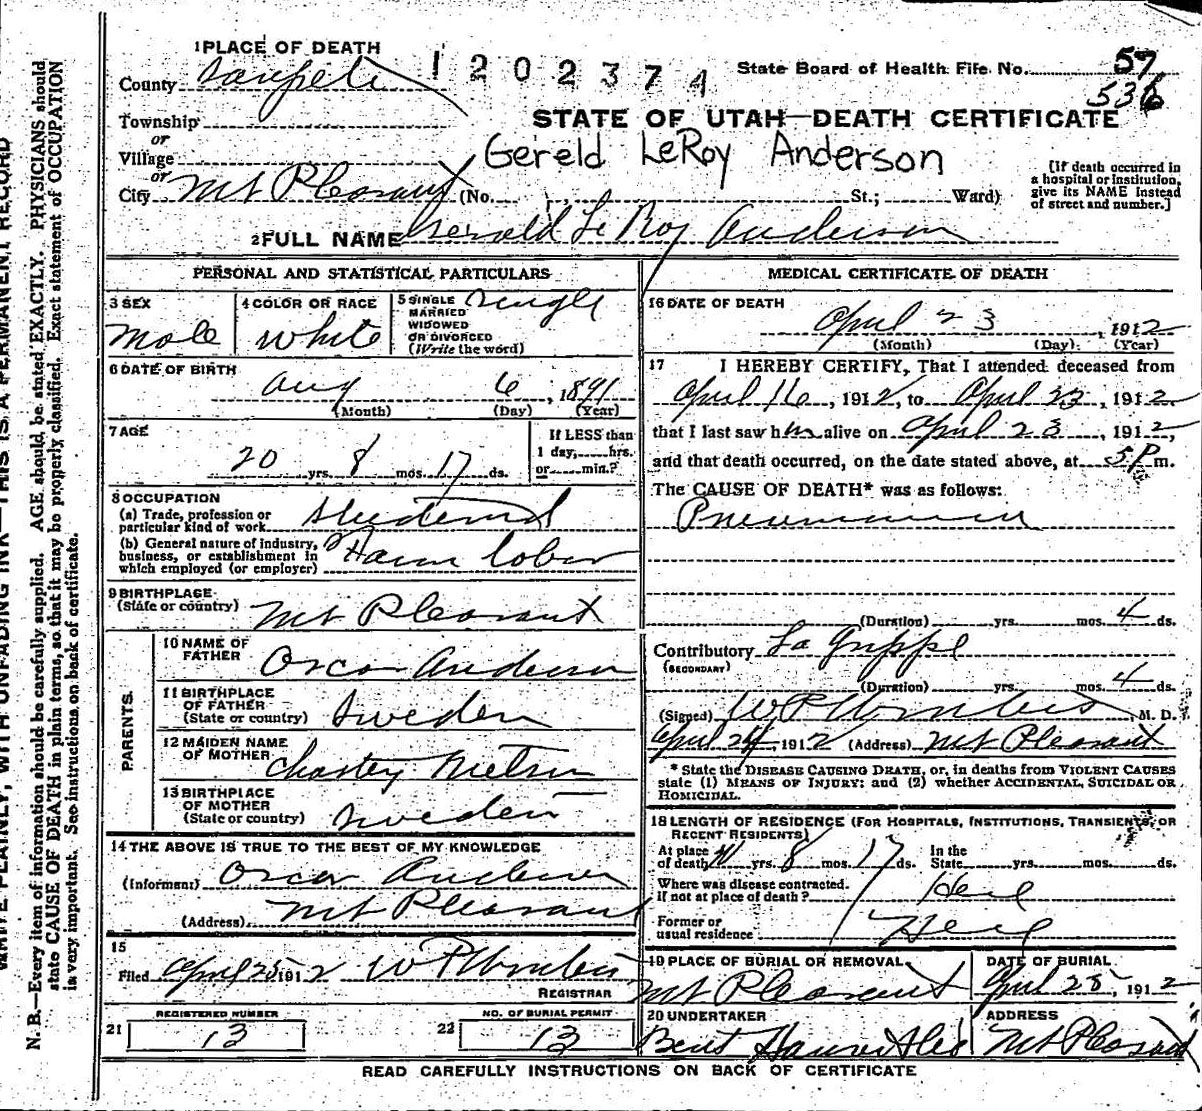 1 PLACE OF DEATH
1 2 0 2 3 7 4
State Board of Health File No. 57
536
County Sanpete
STATE OF UTAH—DEATH CERTIFICATE
Township
or
Village
Gereld LeRoy Anderson
or
City Mt Pleasant (No. St.; Ward)
[If death occurred in
a hospital or institution,
give its NAME instead
of street and number.]
2 FULL NAME Gerald Le Roy Anderson
PERSONAL AND STATISTICAL PARTICULARS
3 SEX
Male
4 COLOR OR RACE
White
5 SINGLE
MARRIED
WIDOWED
OR DIVORCED
(Write the word)
Single
6 DATE OF BIRTH
Aug 6, 1891
(Month) (Day) (Year)
7 AGE
20 yrs. 8 mos. 17 ds.
If LESS than
1 day, hrs.
or min.?
8 OCCUPATION
(a) Trade, profession or
particular kind of work
(b) General nature of industry,
business, or establishment in
which employed (or employer) Farm Labor
9 BIRTHPLACE
(State or country) Mt Pleasant
PARENTS.
10 NAME OF
FATHER Oscar Anderson
11 BIRTHPLACE
OF FATHER
(State or country) Sweden
12 MAIDEN NAME
OF MOTHER Chastey
13 BIRTHPLACE
OF MOTHER
(State or country) Sweden
14 THE ABOVE IS TRUE TO THE BEST OF MY KNOWLEDGE
(Informant) Oscar Anderson
(Address) Mt Pleasant
15
Filed April 25 1912 W P
REGISTRAR
21 REGISTERED NUMBER
13
22 NO. OF BURIAL PERMIT
13
MEDICAL CERTIFICATE OF DEATH
16 DATE OF DEATH
April 23, 1912
(Month) (Day) (Year)
17 I HEREBY CERTIFY, That I attended deceased from
April 16, 1912, to April 23, 1912
that I last saw him alive on April 23, 1912,
and that death occurred, on the date stated above, at 5 P m.
The CAUSE OF DEATH* was as follows:
Pneumonia
(Duration) yrs. mos. 4 ds.
Contributory La Grippe
(SECONDARY)
(Duration) yrs. mos. 4 ds.
(Signed) W P M. D.
April 24, 1912 (Address) Mt Pleasant
* State the DISEASE CAUSING DEATH, or, in deaths from VIOLENT CAUSES
state (1) MEANS OF INJURY: and (2) whether ACCIDENTAL, SUICIDAL OR
HOMICIDAL.
18 LENGTH OF RESIDENCE (FOR HOSPITALS, INSTITUTIONS, TRANSIENTS, OR
RECENT RESIDENTS)
At place
of death yrs. 8 mos. 17 ds. In the
State yrs. mos. ds.
Where was disease contracted.
if not at place of death? Here
Former or
usual residence Here
19 PLACE OF BURIAL OR REMOVAL
Mt Pleasant
DATE OF BURIAL
April 25, 1912
20 UNDERTAKER
Bent
ADDRESS
Mt Pleasant
READ CAREFULLY INSTRUCTIONS ON BACK OF CERTIFICATE
WRITE PLAINLY, WITH UNFADING INK—THIS IS A PERMANENT RECORD
N. B.—Every item of information should be carefully supplied. AGE should be stated EXACTLY. PHYSICIANS should
state CAUSE OF DEATH in plain terms, so that it may be properly classified. Exact statement of OCCUPATION
is very important. See instructions on back of certificate.